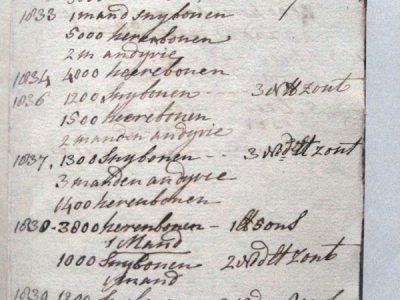 1833 1 mand snybonen
5000 heerenbonen
2 m andyvie
1834 4000 heerebonen
1836 1200 snybonen -- 3 N tt zout
1500 heerebonen
2 manden andyvie
1837. 1300 snybonen -- 3 Ned tt zout
3 manden andyvie
1400 heerenbonen
1838 - 3800 heerenbonen -
1 Mand
1000 Snybonen 2 Ned tt zout
1 mand
1839 1200